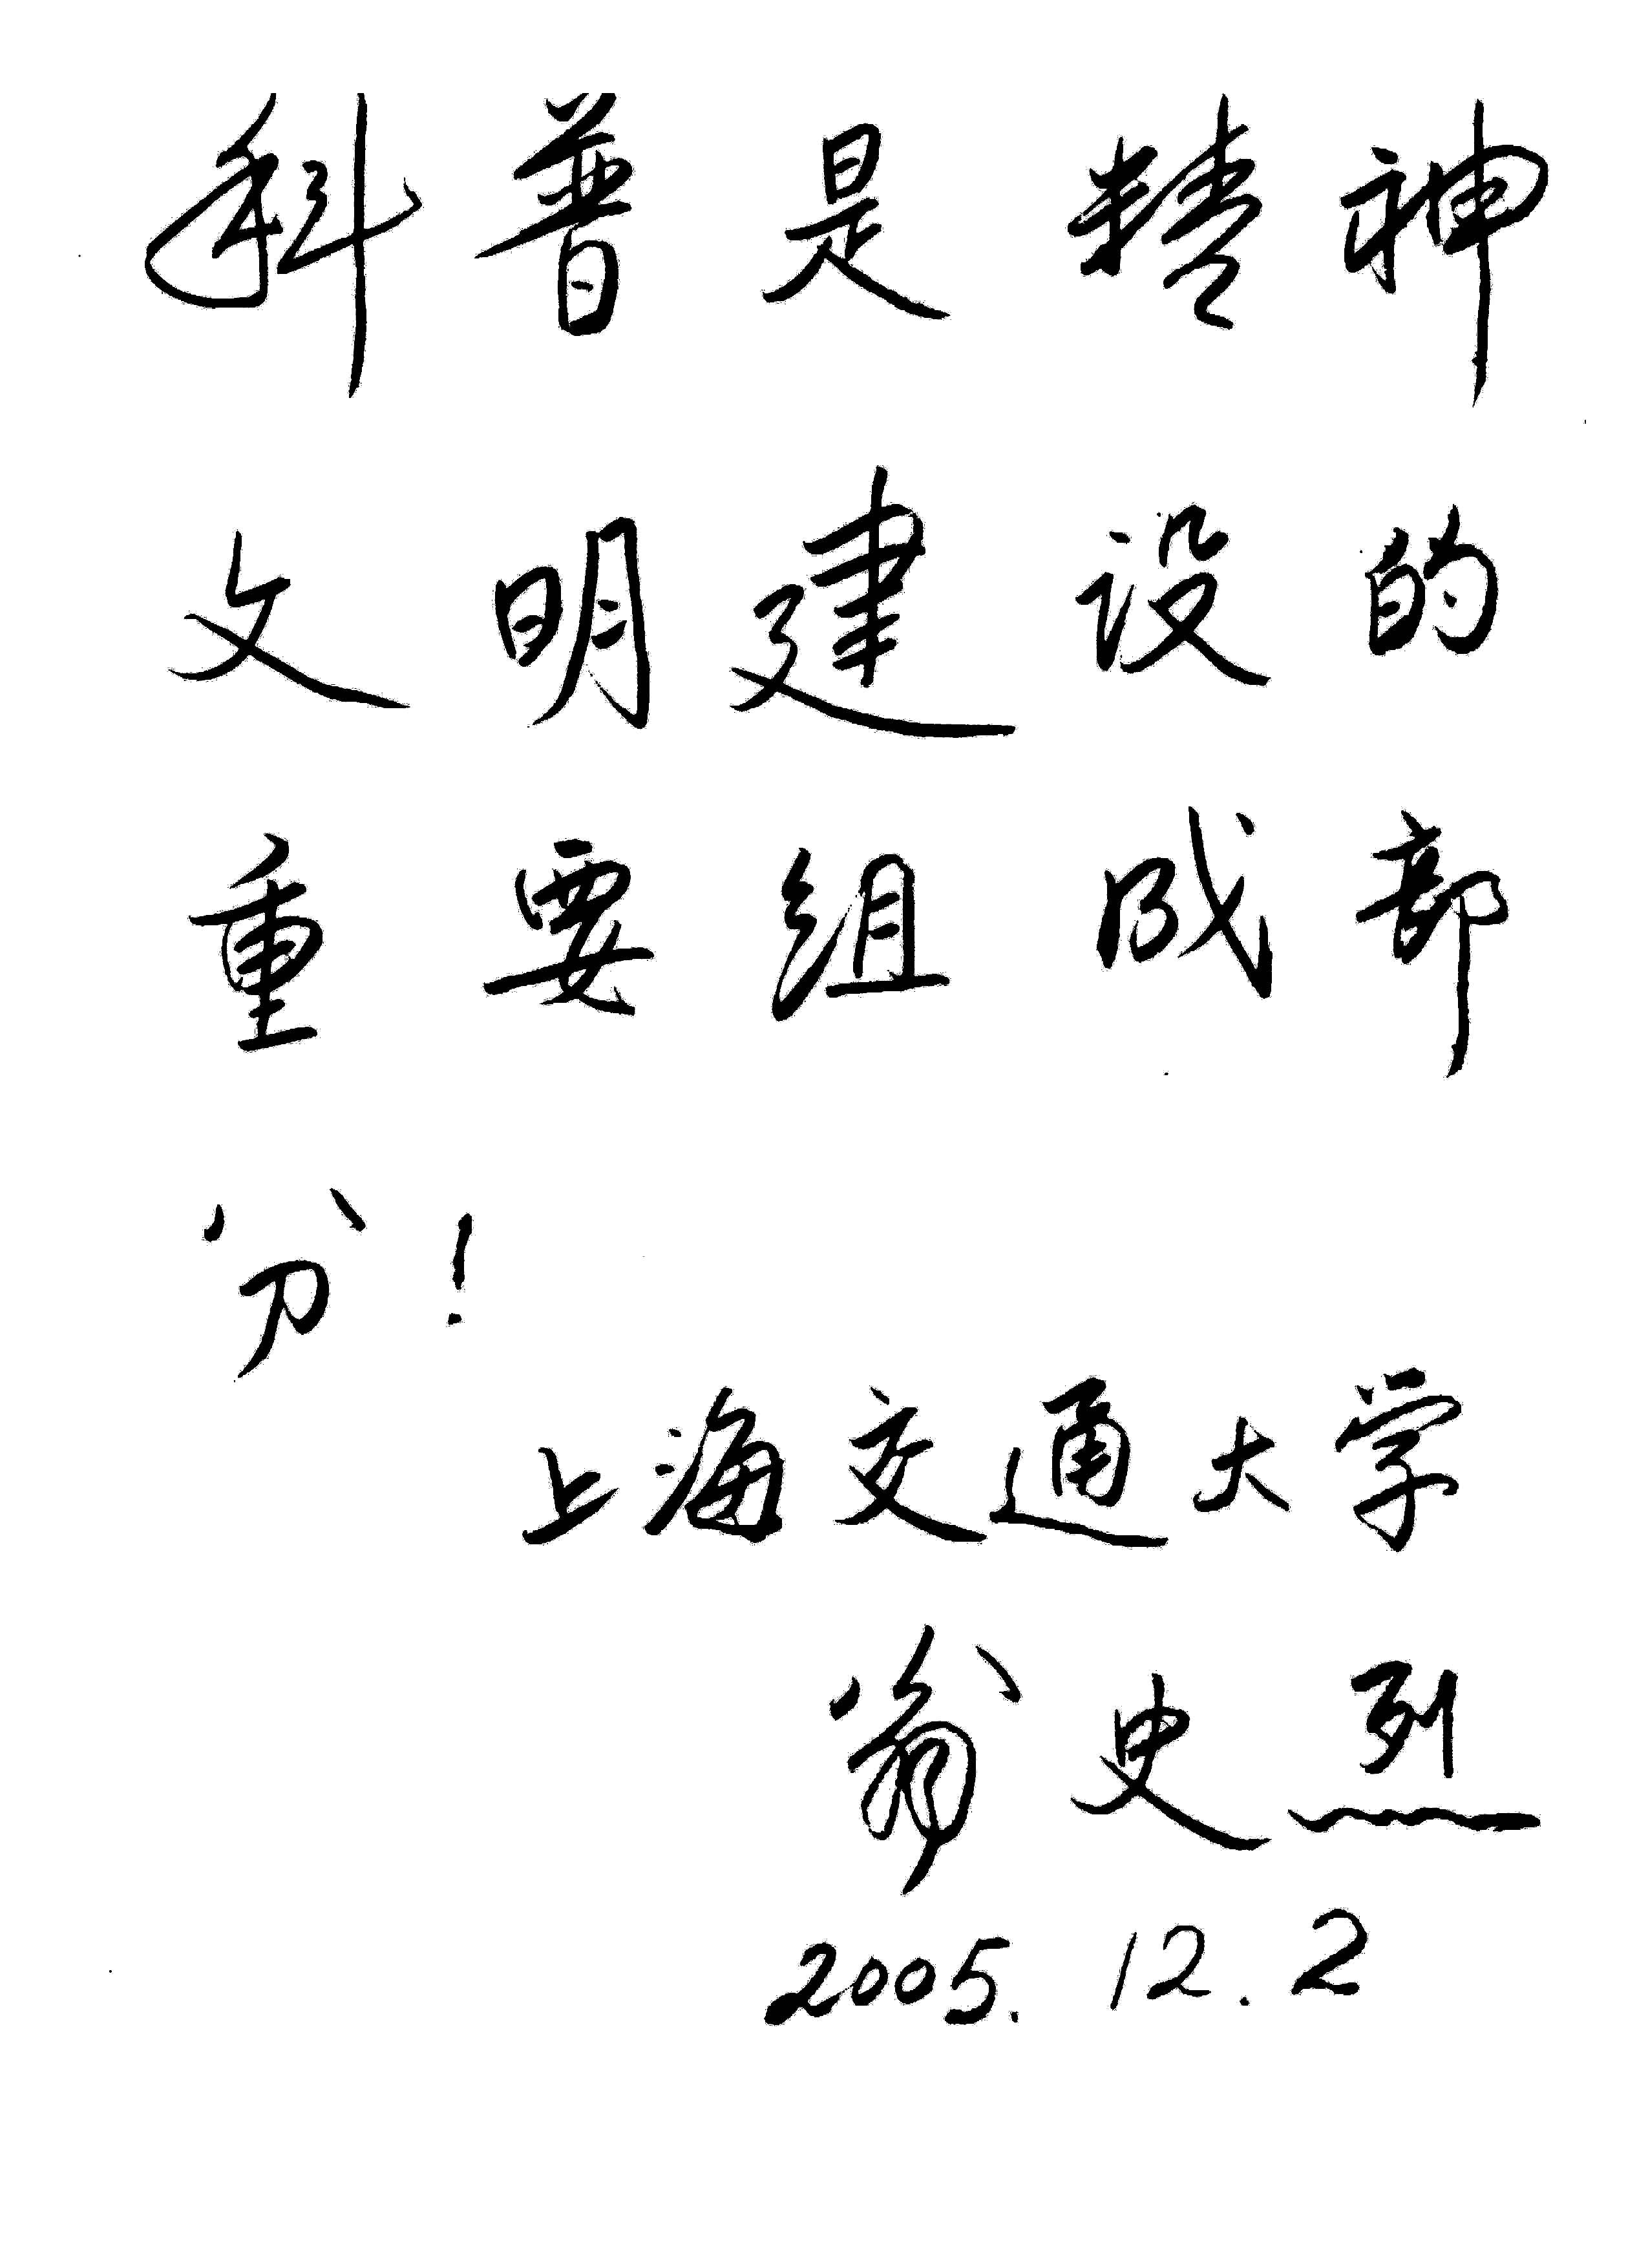 科普是精神
文明建设的
重要组成部
分！
上海交通大学
翁史烈
2005.12.2